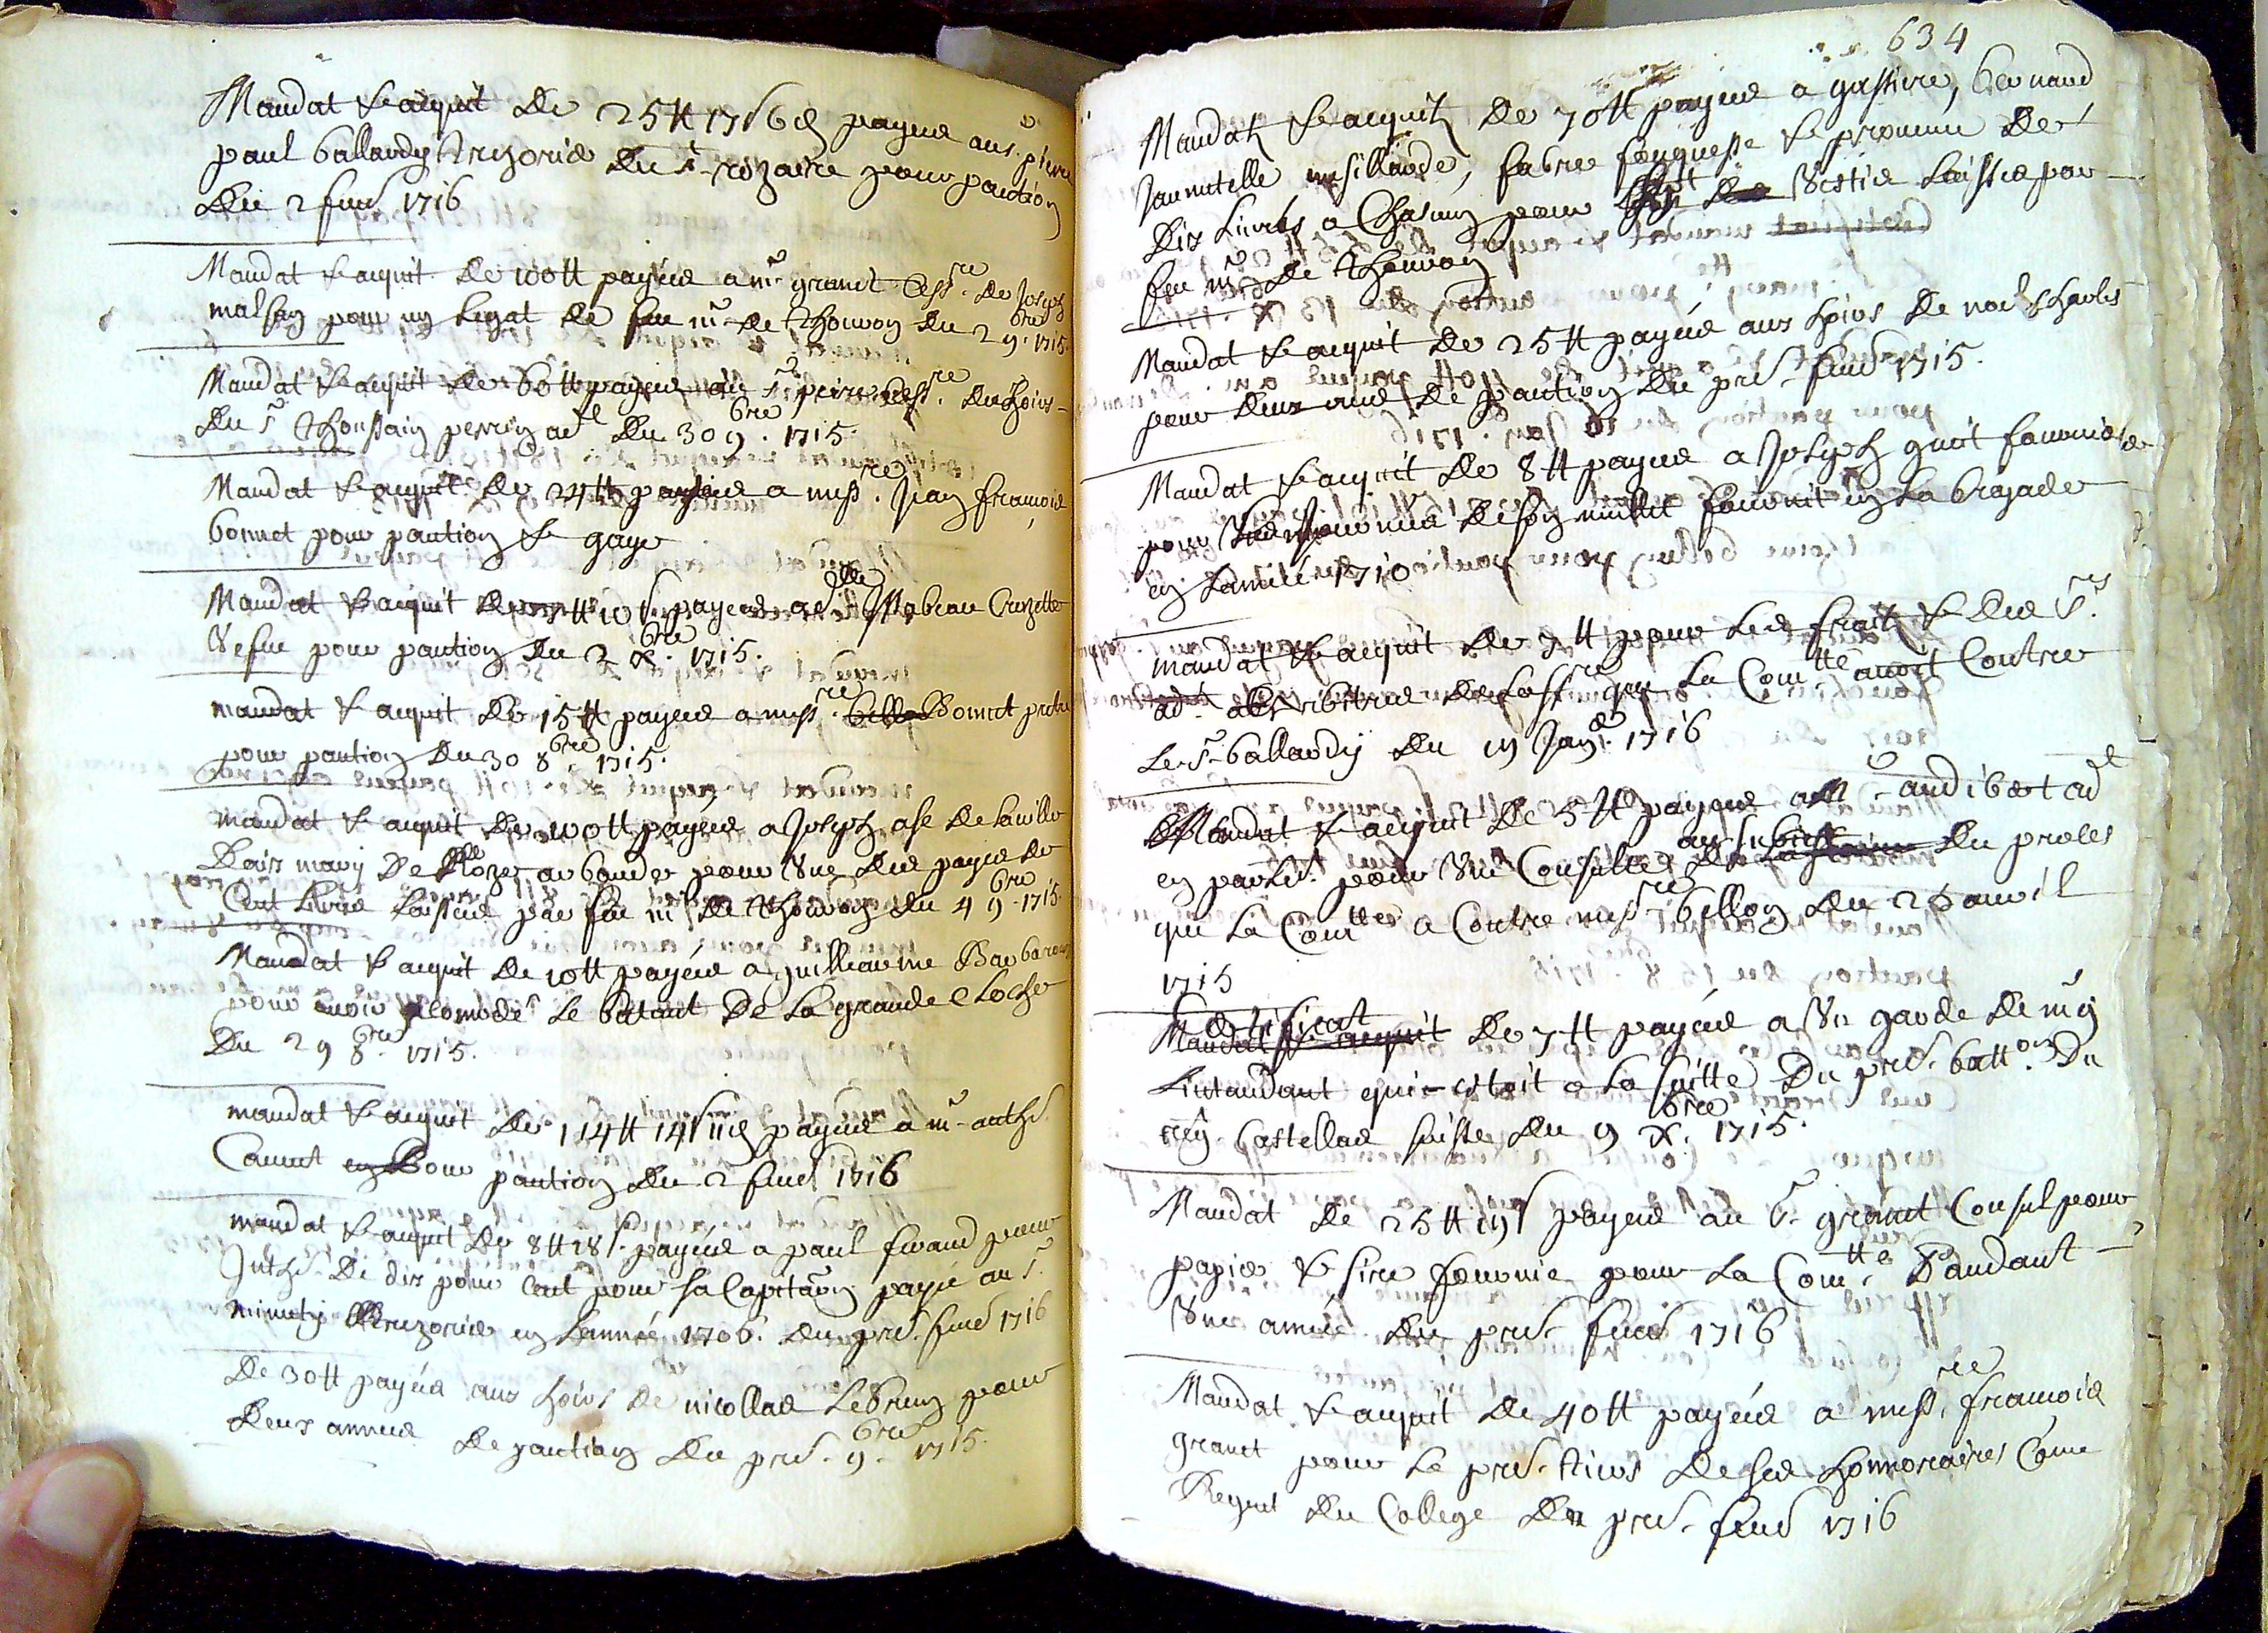 Mandat & aquit de 25 ₶ 17 s 6 d payees au s.r pierre
paul ballardy trezorié du s.t rozaire pour pantion
du 2 fevr. 1716
Mandat & aquit de 100 ₶ payées a m.r granet cess.re de Joseph
malsan pour un legat de feu m.r de thouron du 2 9.bre 1715
Mandat & aquit de 60 ₶ payees au s.r peire cess.re du hoirs
du s.r thoussain perrin ad.t du 30 9.bre 1715.
Mandat & aquit de 24 ₶ payees a mess.re Jean francois
bonnet pour pantion & gage
Mandat & aquit de ₶ 10 s payees a d.lle Mabeau Cruzette
Vefue pour pantion du 2 x.bre 1715.
mandat & aquit de 15 ₶ payees a mess.re Bonnet pretre
pour pantion du 30 8.bre 1715.
mandat & aquit de 100 ₶ payées a Joseph de la ville
Daix mary de pour Une due payee de
Cent livres laissees par feu m.r de thouron du 4 9.bre 1715.
Mandat & aquit de 10 ₶ payées a guilleaume Barbaroux
pour avoir acomodé le batant de la grande cloche
Du 29 8.bre 1715.
mandat & aquit de 114 ₶ 14 s 11 d payees a m.r anth.
Caunet pour pantion du 2 fevr. 1716
mandat & aquit de 8 ₶ 18 s. payées a paul feraud pour
Inth. De dix pour cent pour sa Capitaon payé au s.r
minuty trezorié en l'année 1706. du pr. fevr 1716
De 30 ₶ payées aux hoirs de nicollas Lebrun pour
deux annees de pantion du pr. 9.bre 1715.
634
Mandat & aquit de 70 ₶ payees a gastiere, bernand
Jaunutelle, fabre & de
dix livres a chasun pour Vestie laissee par
feu m.r de thouron
Mandat & aquit de 25 ₶ payées aux hoirs de noel charles
pour deux années de pantion du pr. fevr 1715.
Mandat & aquit de 8 ₶ payees a Joseph guit
pour de son mullet fournit en la brigade
en l'année 1710
mandat & aquit de 7 ₶ pour les frais & des s.rs
arbitres de l'aff.re que la Com.tté avoit Contre
le s.r ballardy du 19 Jan. 1716
Mandat & aquit de 5 ₶ payees a m.r audibert ad.t
en parl. pour Une Consulte au subiect du proces
que la Com.tté a Contre mess.re billon du 26 avril
1715
Certificat de 7 ₶ payées a Un garde de m.gr
L'intandant qui estoit a la suitte du pr. batt.on du
reg. Castellas suisse du 9 x.bre 1715.
Mandat de 25 ₶ 19 s payees au s.r granet Consul pour
papier & sire fournie pour la Com.tté Pandant
Une année du pr. fevr 1716
Mandat & aquit de 40 ₶ payées a mess.re francois
granet pour le pr. tiers de ses honnoraires Come
Regent du College du pr. fevr 1716